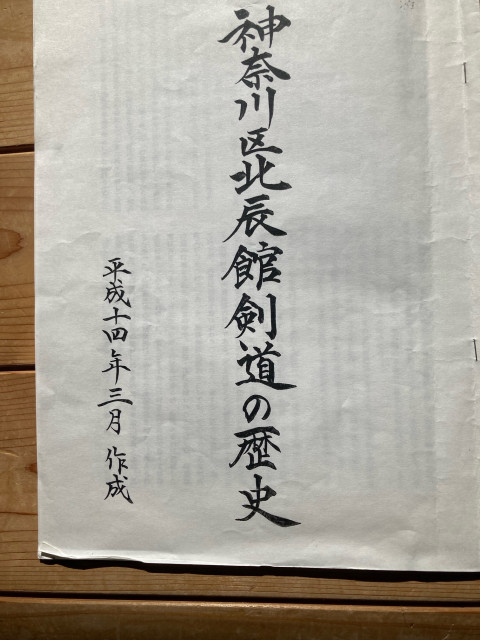 神奈川区北辰館剣道の歴史
平成十四年三月作成